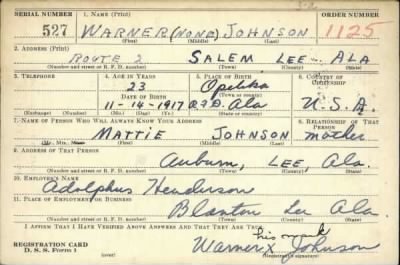 SERIAL NUMBER 1. NAME (Print) ORDER NUMBER
527 WARNER (NONE) JOHNSON 1125
(First) (Middle) (Last)
2. ADDRESS (Print)
ROUTE 2 SALEM LEE ALA
(Number and street or R. F. D. number) (Town) (County) (State)
3. TELEPHONE 4. AGE IN YEARS 5. PLACE OF BIRTH 6. COUNTRY OF CITIZENSHIP
23 Opelika
DATE OF BIRTH (Town or county)
11-14-1917 R.F.D. Ala U.S.A.
(Exchange) (Number) (Mo.) (Day) (Yr.) (State or country)
7. NAME OF PERSON WHO WILL ALWAYS KNOW YOUR ADDRESS 8. RELATIONSHIP OF THAT PERSON
MATTIE JOHNSON mother
(Mr., Mrs., Miss) (First) (Middle) (Last)
9. ADDRESS OF THAT PERSON
Auburn, LEE, Ala.
(Number and street or R. F. D. number) (Town) (County) (State)
10. EMPLOYER'S NAME
Adolphus Henderson
11. PLACE OF EMPLOYMENT OR BUSINESS
Blanton Lee Ala.
(Number and street or R. F. D. number) (Town) (County) (State)
I AFFIRM THAT I HAVE VERIFIED ABOVE ANSWERS AND THAT THEY ARE TRUE.
his mark
REGISTRATION CARD Warner x Johnson
D. S. S. Form 1 (over) (Registrant's signature)